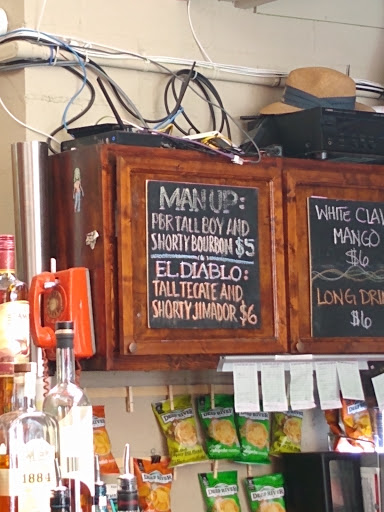 MAN UP:
PBR TALL BOY AND
SHORTY BOURBON $5
&
EL DIABLO:
TALL TECATE AND
SHORTY JIMADOR $6
WHITE CLAW
MANGO
$6
LONG DRI
$6
1884